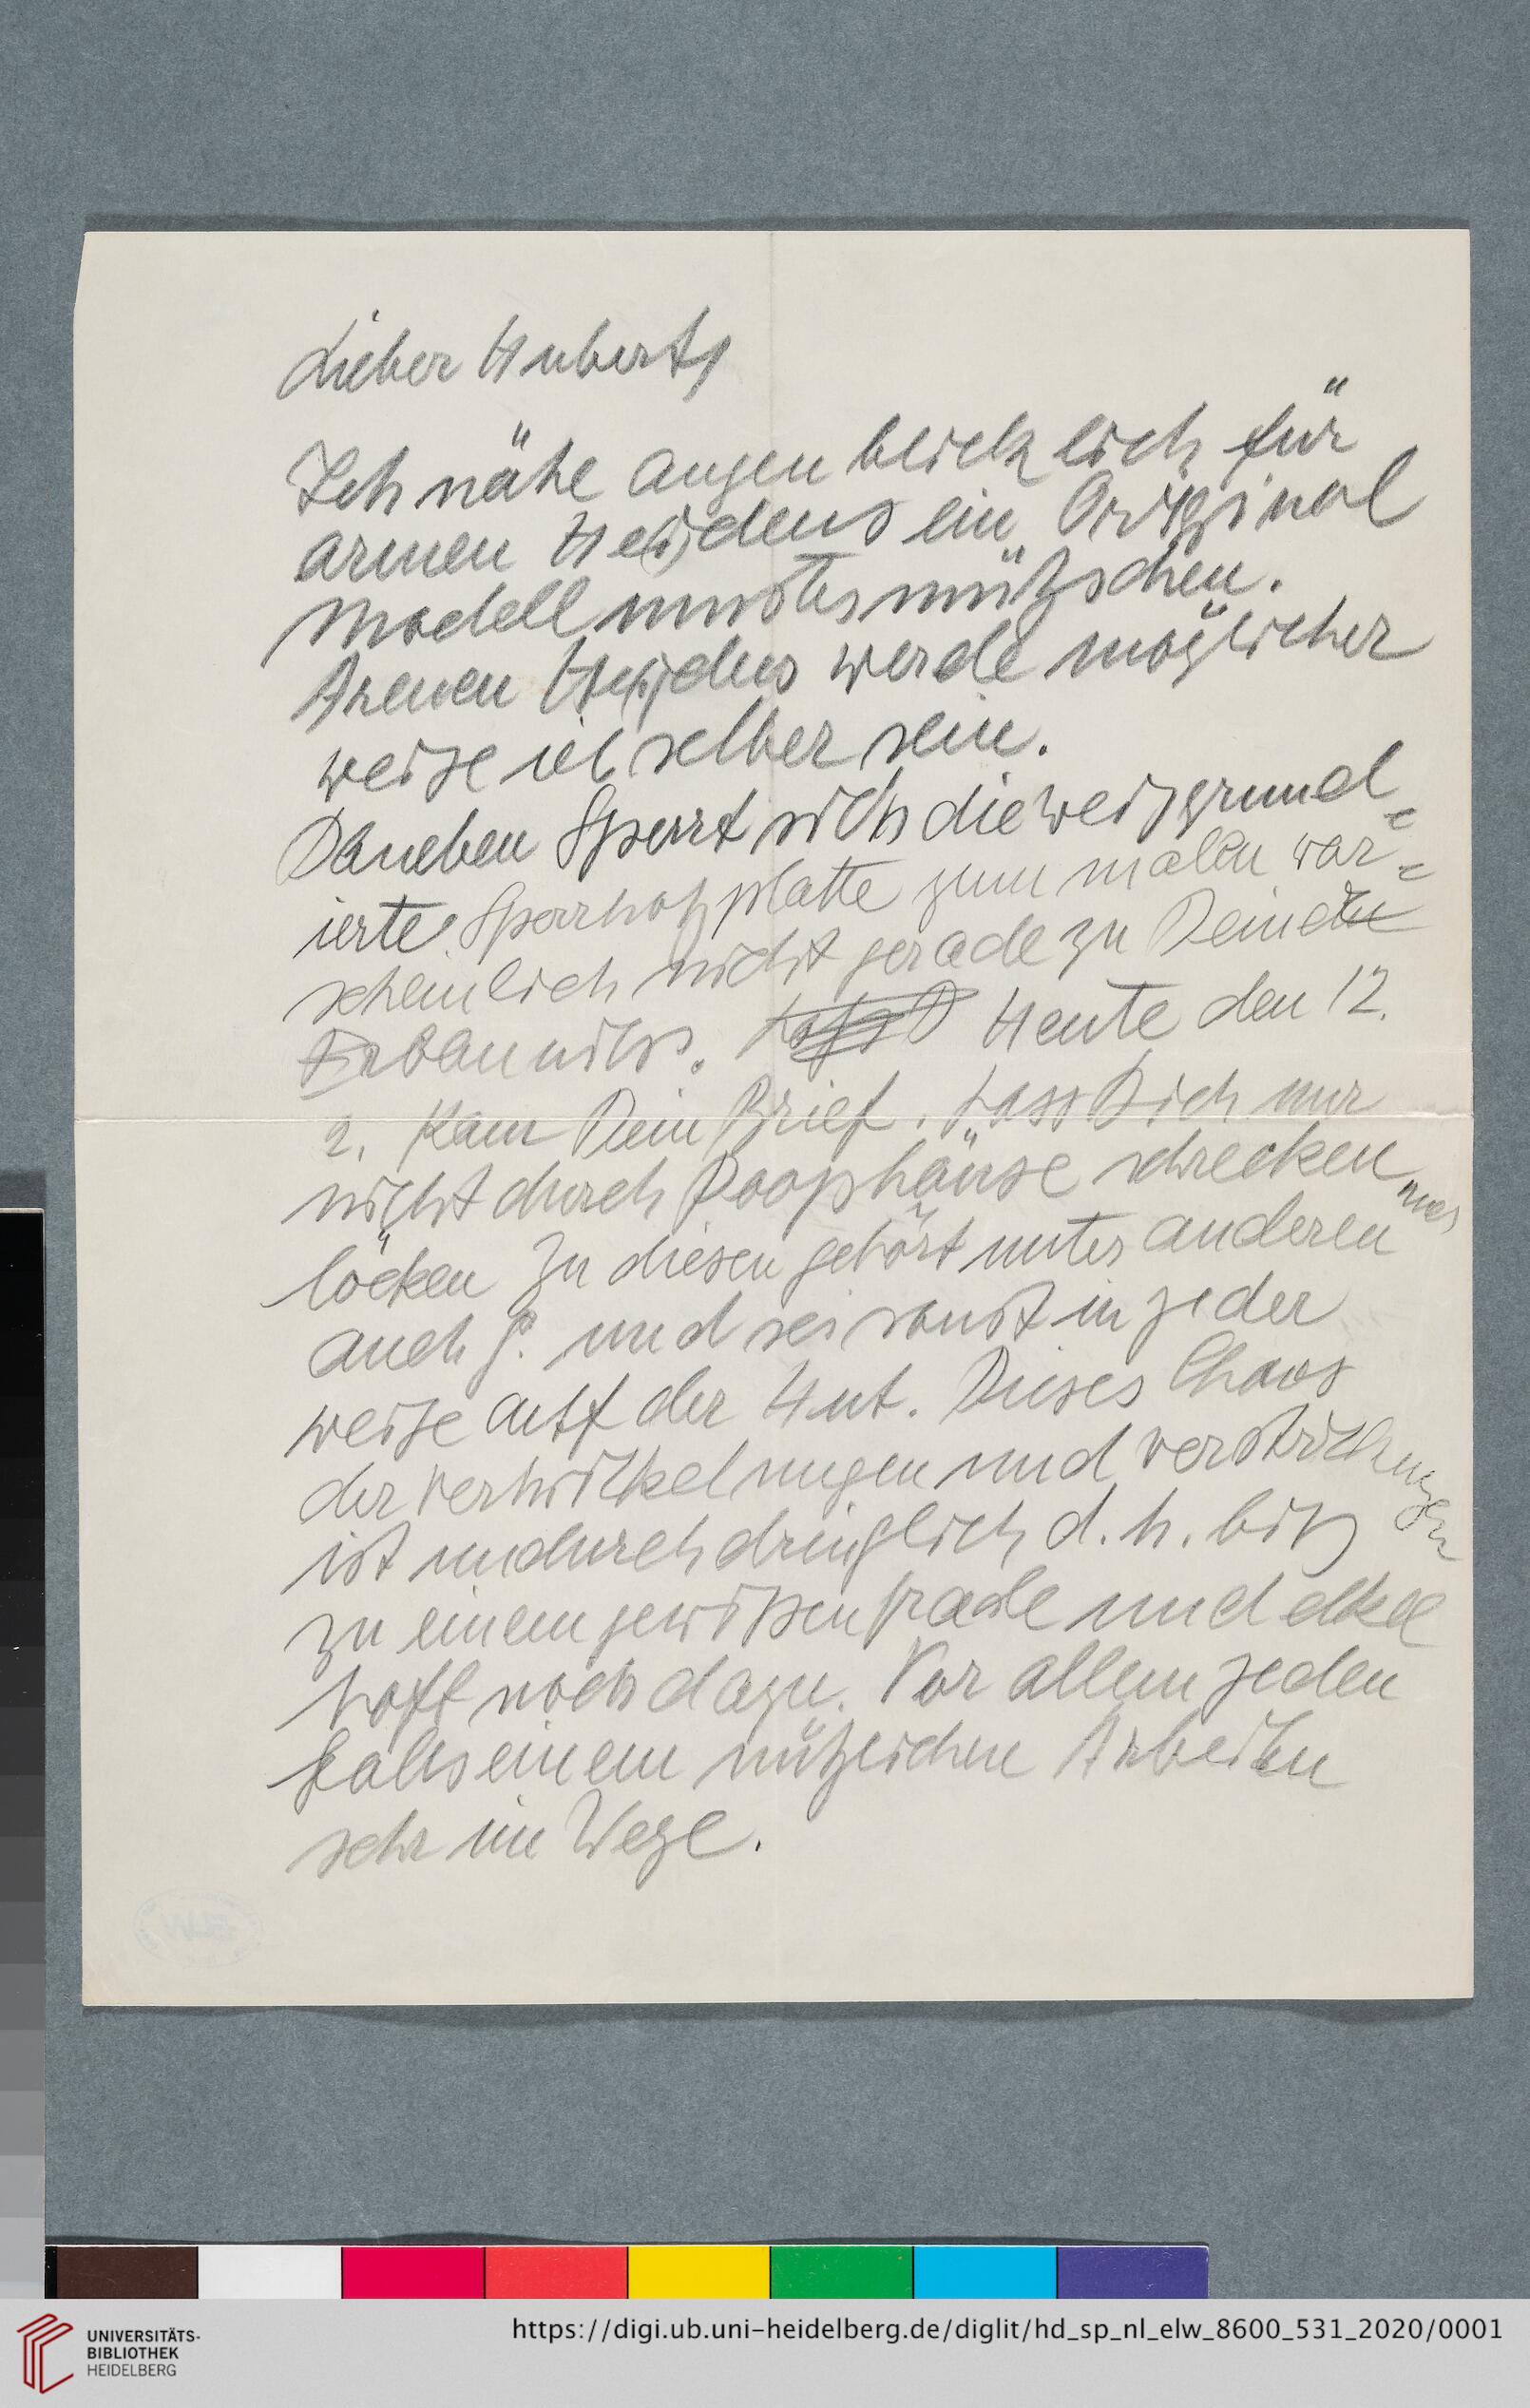 Lieber Hubert,
Ich nähe augenblicklich für
armen He(i)dens ein Original
Modellmustermützschen.
Armen He(i)dens werde möglicher
weise ich selber sein.
Daneben Sperrt sich die weizgrund=
ierte Sperrholzplatte zum malen war=
scheinlich nicht gerade zu
Heute den 12.
2. kam Dein Brief. Lass Dich nur
nicht durch Poophäuse schrecken
löcken Zu diesen gehört unter anderen
auch G. und sei sonst in jeder
weise auf der Hut. Dieses Chaos
der verwickelungen und verstrickungen
ist undurchdringlich d. h. bis
zu einem gewissen grade und ekel
haft noch dazu. Vor allem jeden
falls einem nützlichen Arbeiten
sehr im Wege.
UNIVERSITÄTS-
BIBLIOTHEK
HEIDELBERG
https://digi.ub.uni-heidelberg.de/diglit/hd_sp_nl_elw_8600_531_2020/0001